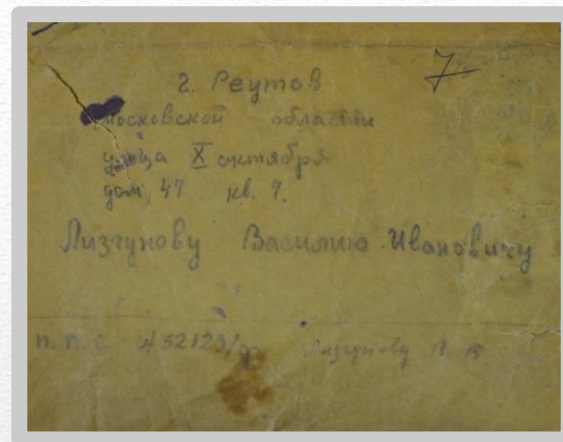 7
г. Реутов
Московской области
улица X октября
дом 47 кв. 7.
Лизгунову Василию Ивановичу
п. п. с №32123/ Лизгунову В. В